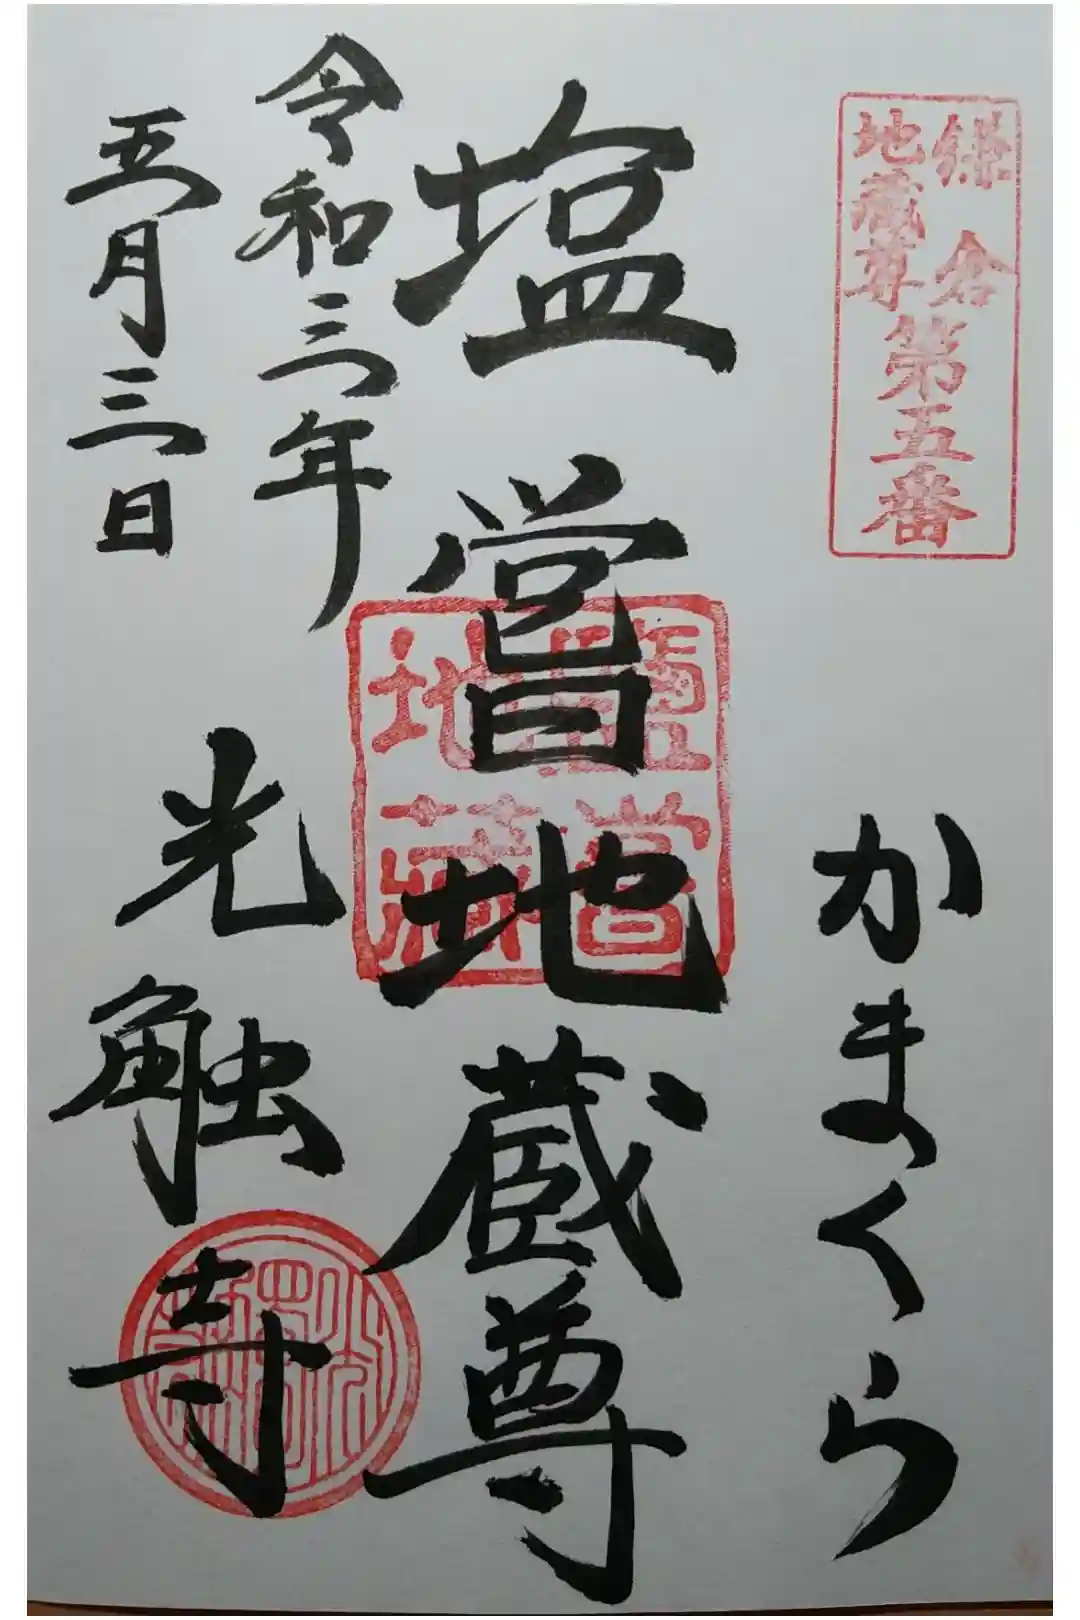 鎌倉
地蔵尊
第五番
かまくら
塩嘗地蔵尊
鹽嘗
地蔵
令和三年
五月三日
光触寺